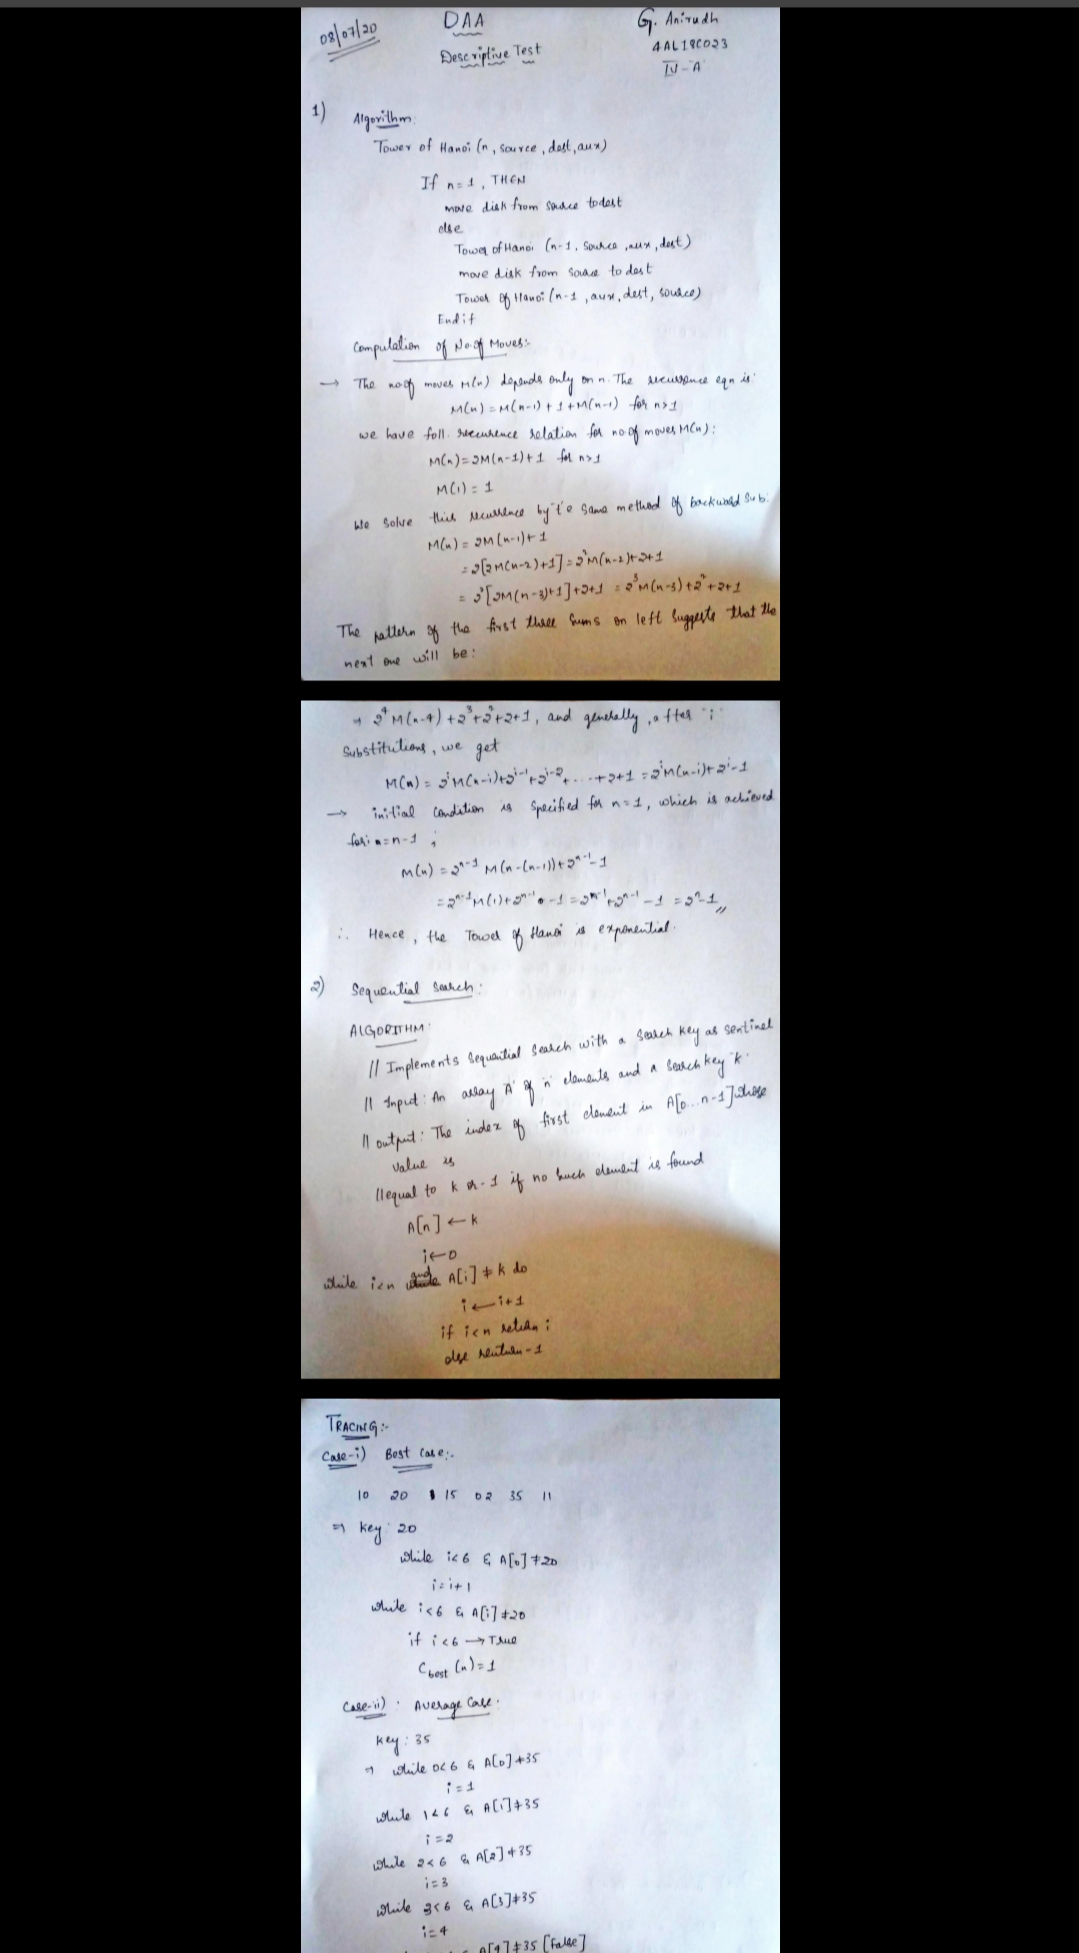 08/07/20
DAA
G. Anirudh
Descriptive Test
4AL18CO23
IV-A
1)
Algorithm:
Tower of Hanoi (n, source, dest, aux)
If n=1, THEN
move disk from source to dest
else
Tower of Hanoi (n-1, source, aux, dest)
move disk from source to dest
Tower of Hanoi (n-1, aux, dest, source)
End if
Computation of No of Moves:-
→ The no of moves M(n) depends only on n. The recurrence eqn is
M(n) = M(n-1) + 1 + M(n-1) for n>1
we have foll. recurrence relation for no of moves M(n):
M(n) = 2M(n-1)+1 for n>1
M(1) = 1
We solve this recurrence by same method of backward sub:
M(n) = 2M(n-1)+1
= 2[2M(n-2)+1] = 2²M(n-2)+2+1
= 2²[2M(n-3)+1]+2+1 = 2³M(n-3)+2²+2+1
The pattern of the first three sums on left suggests that the
next one will be:
→ 2⁴M(n-4)+2³+2²+2+1, and generally, after i
substitutions, we get
M(n) = 2ⁱM(n-i)+2ⁱ⁻¹+2ⁱ⁻²+...+2+1 = 2ⁱM(n-i)+2ⁱ-1
→ initial condition is specified for n=1, which is achieved
for i=n-1;
M(n) = 2ⁿ⁻¹M(n-(n-1))+2ⁿ⁻¹-1
= 2ⁿ⁻¹M(1)+2ⁿ⁻¹-1 = 2ⁿ⁻¹+2ⁿ⁻¹-1 = 2ⁿ-1
∴ Hence, the Tower of Hanoi is exponential.
2) Sequential Search:
ALGORITHM:
// Implements Sequential Search with a Search key as sentinel
// Input: An array 'A' of 'n' elements and a Search key 'k'
// output: The index of first element in A[0...n-1] whose
value is
// equal to k or -1 if no such element is found
A[n] ← k
i ← 0
while i<n and A[i] ≠ k do
i ← i+1
if i<n return i
else return -1
TRACING:-
Case-i) Best Case:-
10 20 15 02 35 11
⇒ key: 20
while i<6 & A[0]≠20
i=i+1
while i<6 & A[i]≠20
if i<6 → True
C best (n)=1
Case-ii) Average Case.
Key: 35
⇒ while 0<6 & A[0]≠35
i=1
while 1<6 & A[1]≠35
i=2
while 2<6 & A[2]≠35
i=3
while 3<6 & A[3]≠35
i=4
A[4]≠35 [False]